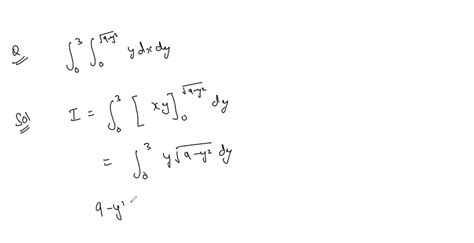 Q ∫₀³ ∫₀^√(9-y²) y dx dy
Sol I = ∫₀³ [ xy ]₀^√(9-y²) dy
= ∫₀³ y √(9-y²) dy
9-y²